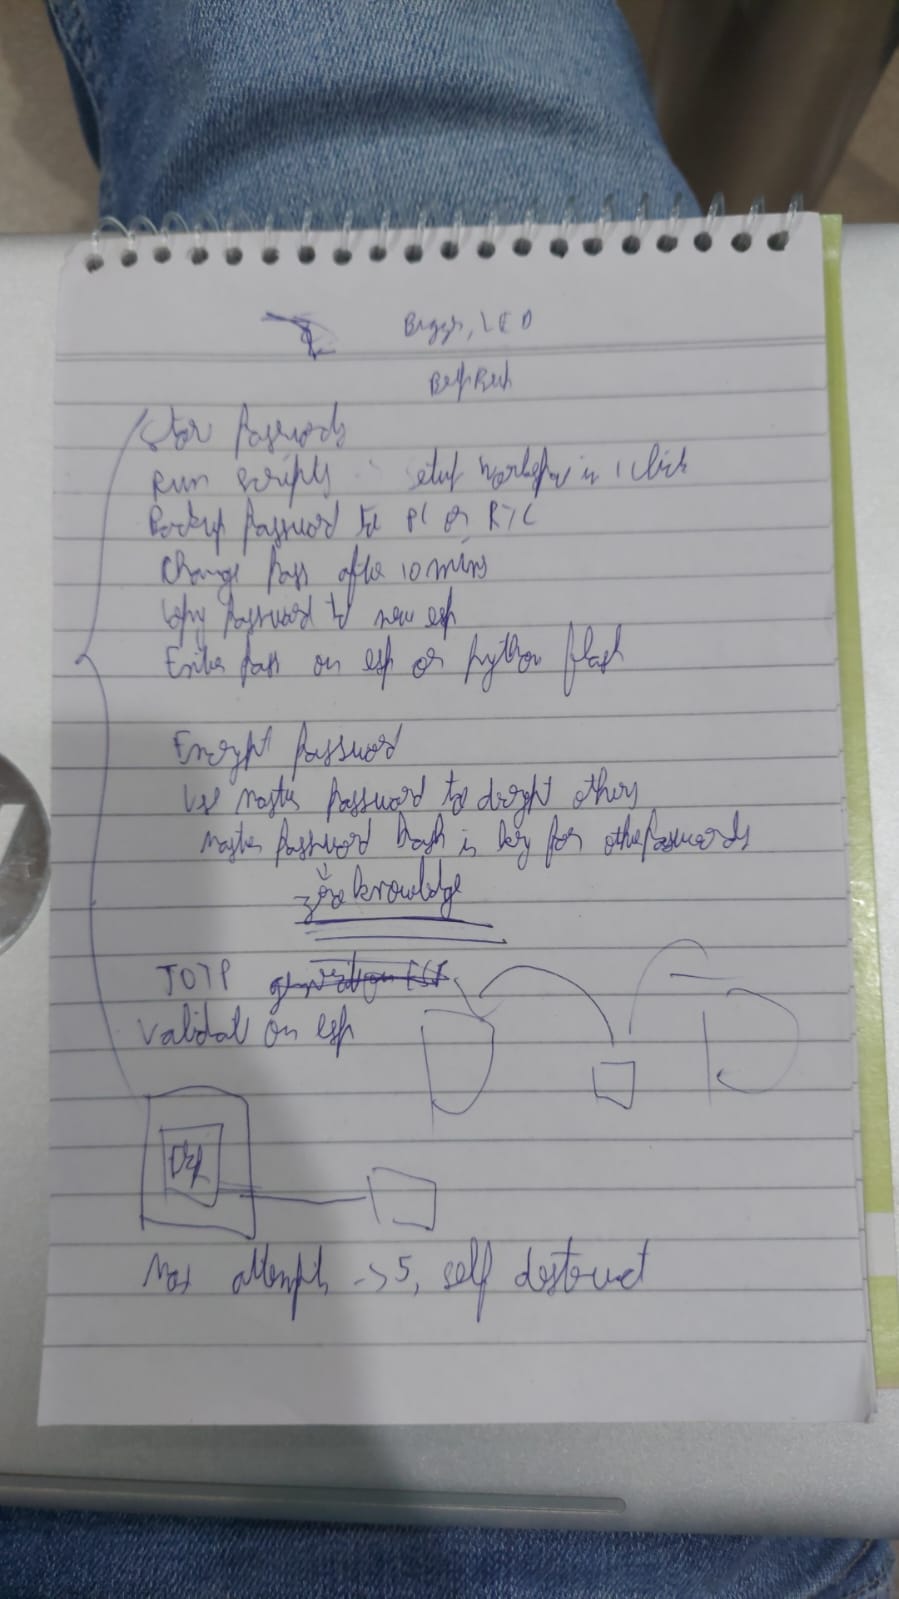 LED
Store Passwords
Run scripts setup workspace in 1 click
Backup Password to PC or RTC
Change Pass after 10 mins
Copy Password to new esp
Enter Pass on esp or python flash
Encrypt Password
Use Master Password to decrypt others
Master Password hash is key for other Passwords
zero knowledge
TOTP
Validat on esp
Max attempts -> 5, self destruct